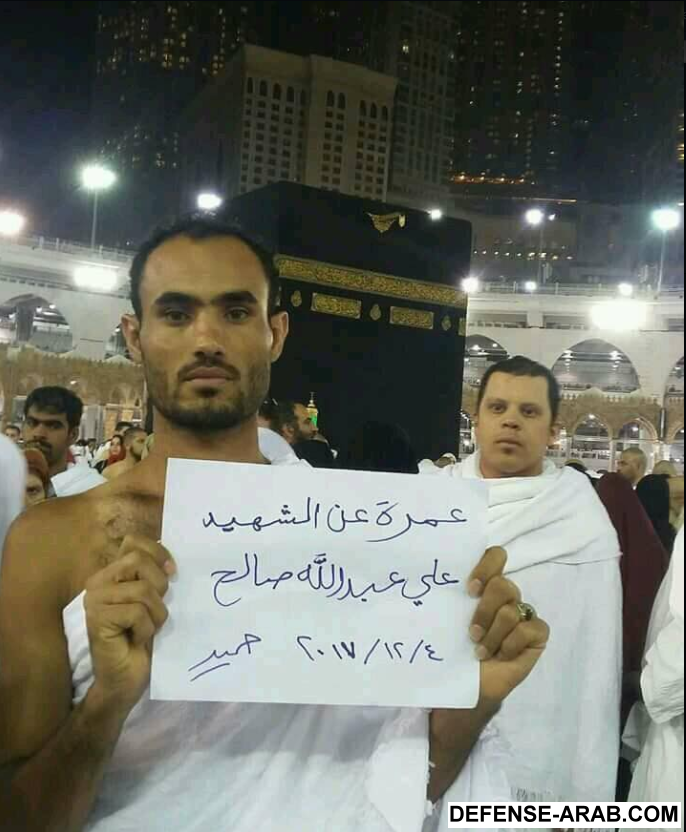 عمرة عن الشهيد
علي عبدالله صالح
٢٠١٧/١٢/٤ حميد
DEFENSE-ARAB.COM